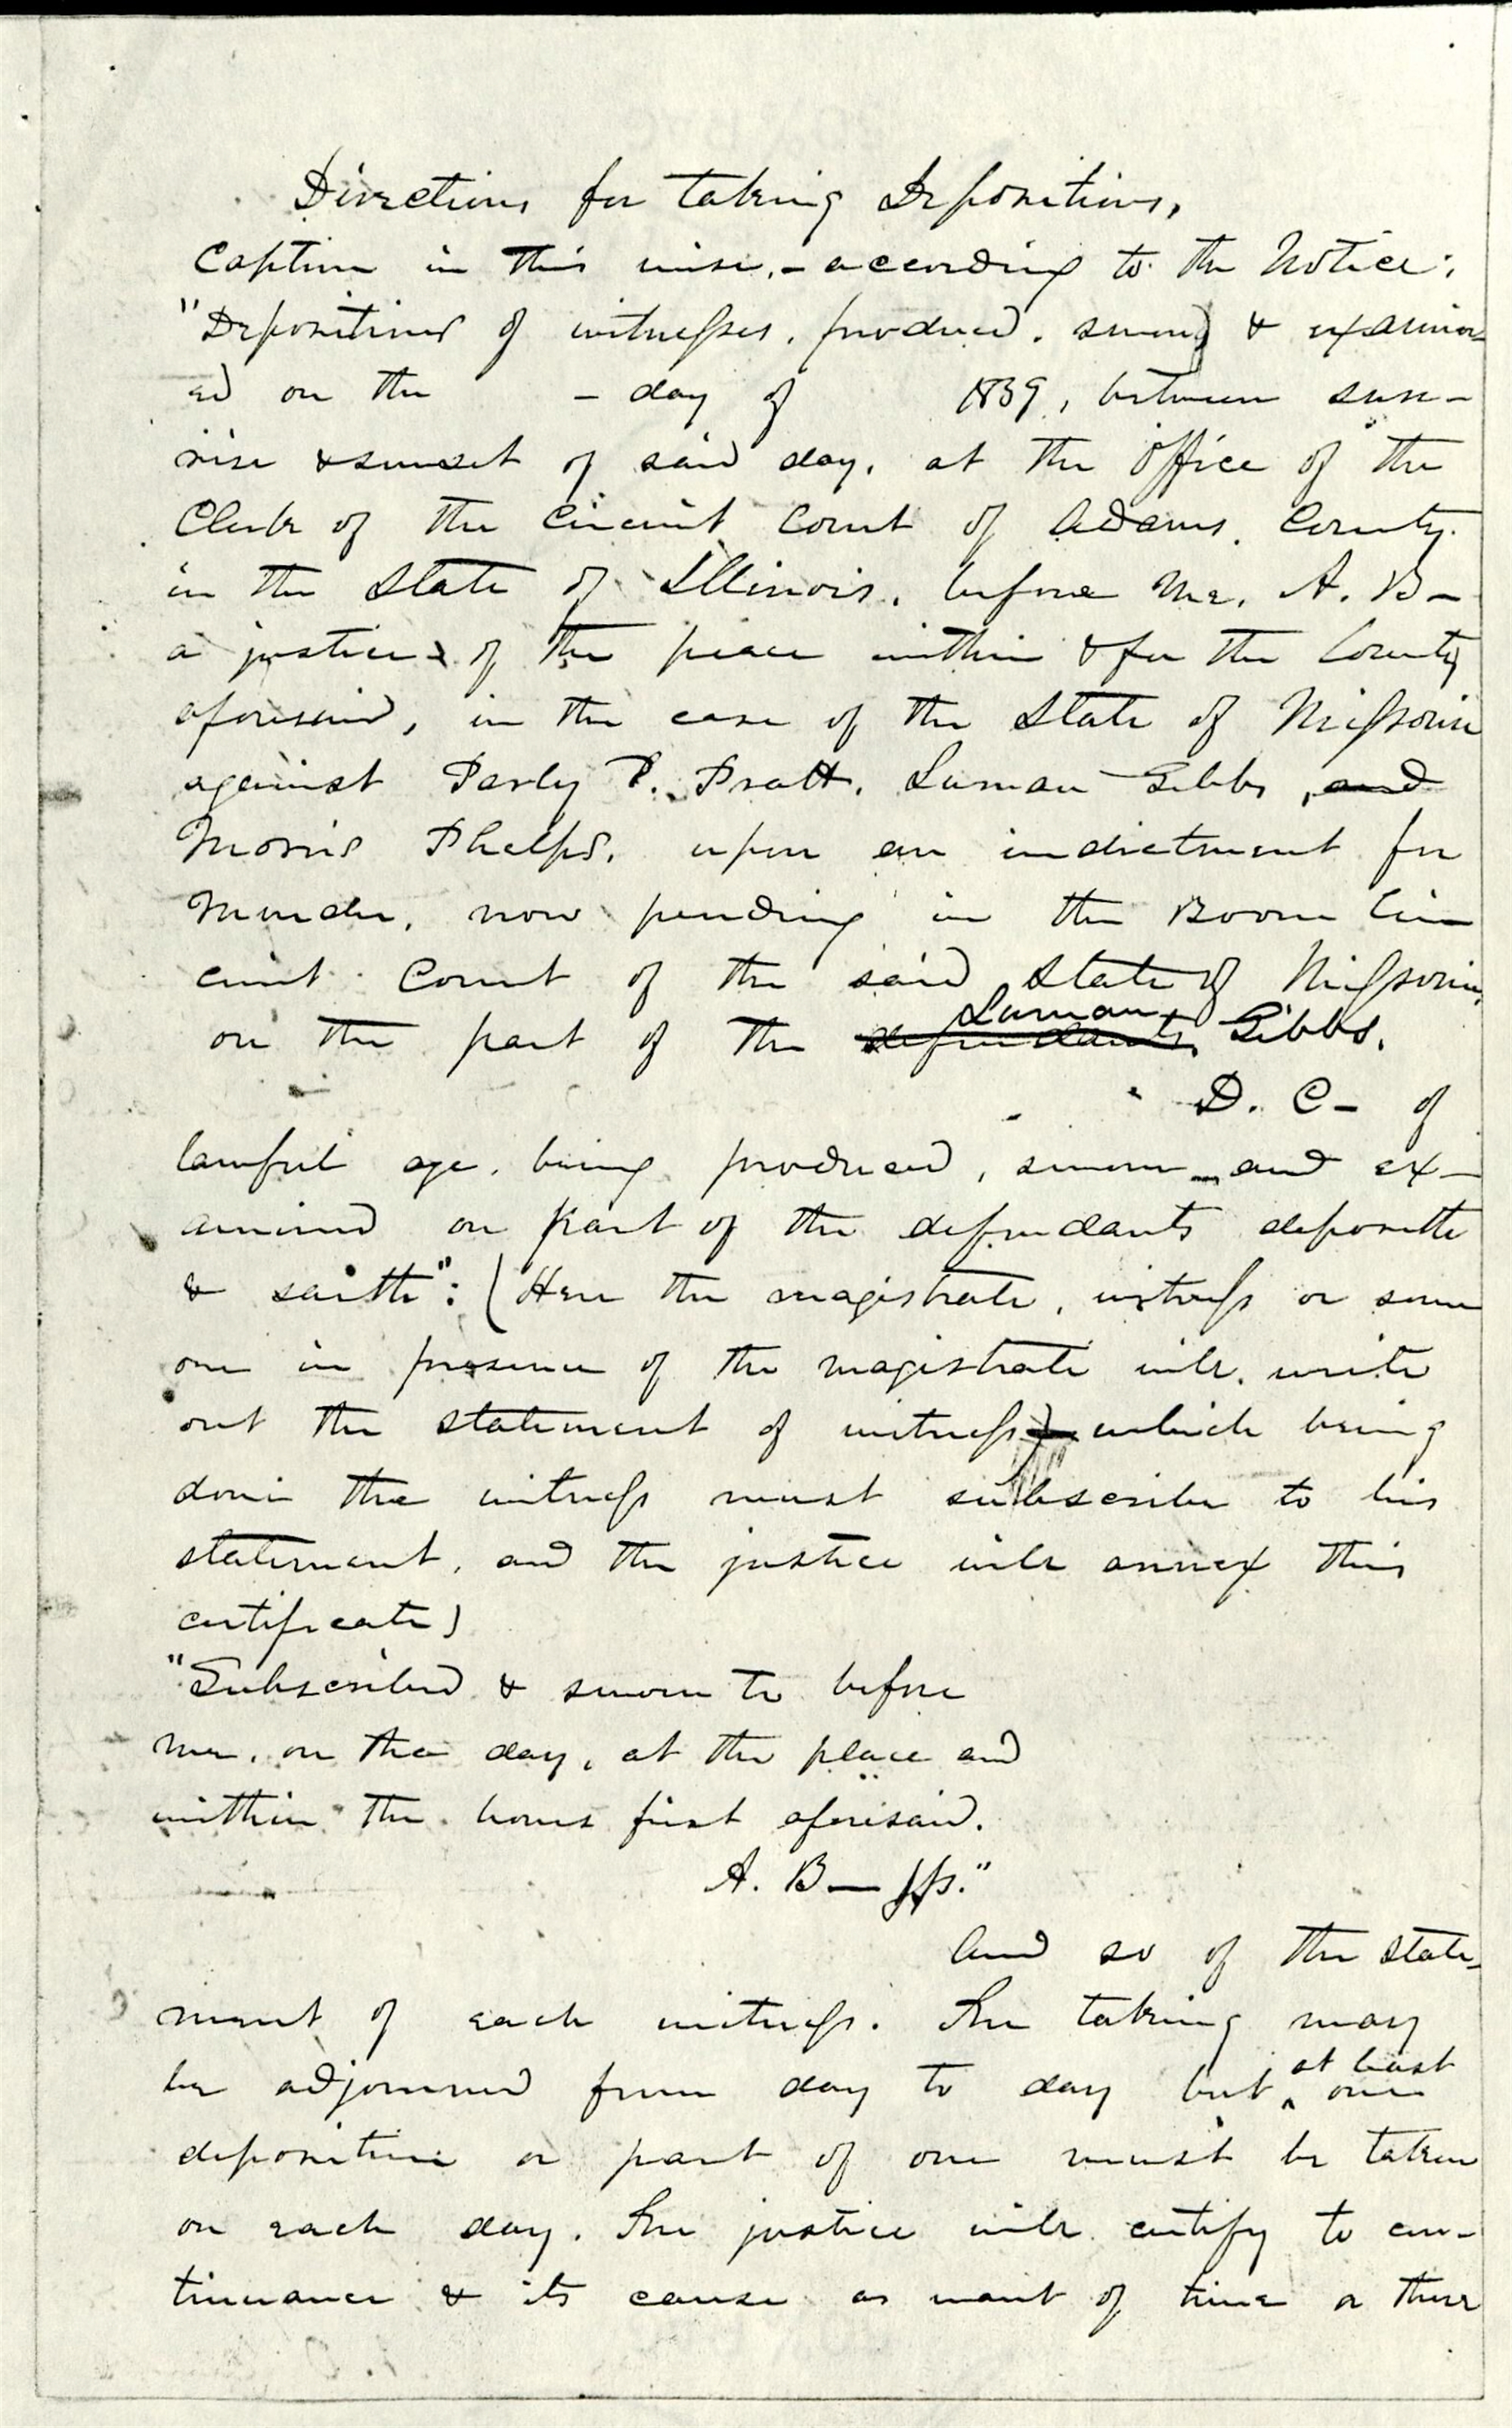 Directions for taking Depositions,
Caption in this wise,- according to the Notice:
"Depositions of witnesses, produced, sworn & examin-
ed on the - day of 1839, between sun-
rise & sunset of said day, at the office of the
Clerk of the Circuit Court of Adams County
in the State of Illinois, before me, A. B-
a justice of the peace within & for the County
aforesaid, in the case of the State of Missouri
against Parly P. Pratt, Luman Gibbs, and
Morris Phelps, upon an indictment for
Murder, now pending in the Boone Cir
cuit Court of the said State of Missouri,
on the part of the defendants, Luman Gibbs.
D. C- of
lawful age, being produced, sworn and ex-
amined on part of the defendants deposeth
& saith": (Here the magistrate, witness or some
one in presence of the magistrate will write
out the statement of witness) which being
done the witness must subscribe to his
statement, and the justice will annex this
certificate)
"Subscribed & sworn to before
me, on the day, at the place and
within the hours first aforesaid.
A. B— JP."
And so of the state-
ment of each witness. The taking may
be adjourned from day to day but at least one
deposition or part of one must be taken
on each day. The justice will certify to con-
tinuance & its cause as want of time or there